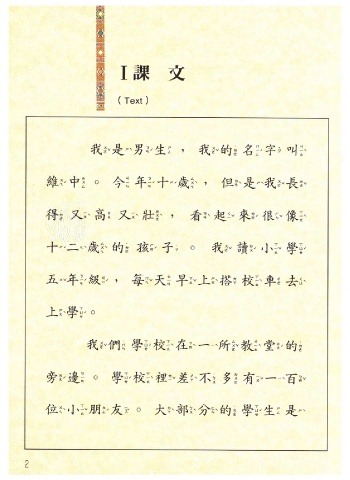 I 課 文
(Text)
我是男生，我的名字叫
維中。今年十歲，但是我長
得又高又壯，看起來很像
十二歲的孩子。我讀小學
五年級，每天早上搭校車去
上學。
我們學校在一所教堂的
旁邊。學校裡差不多有一百
位小朋友。大部分的學生是
2